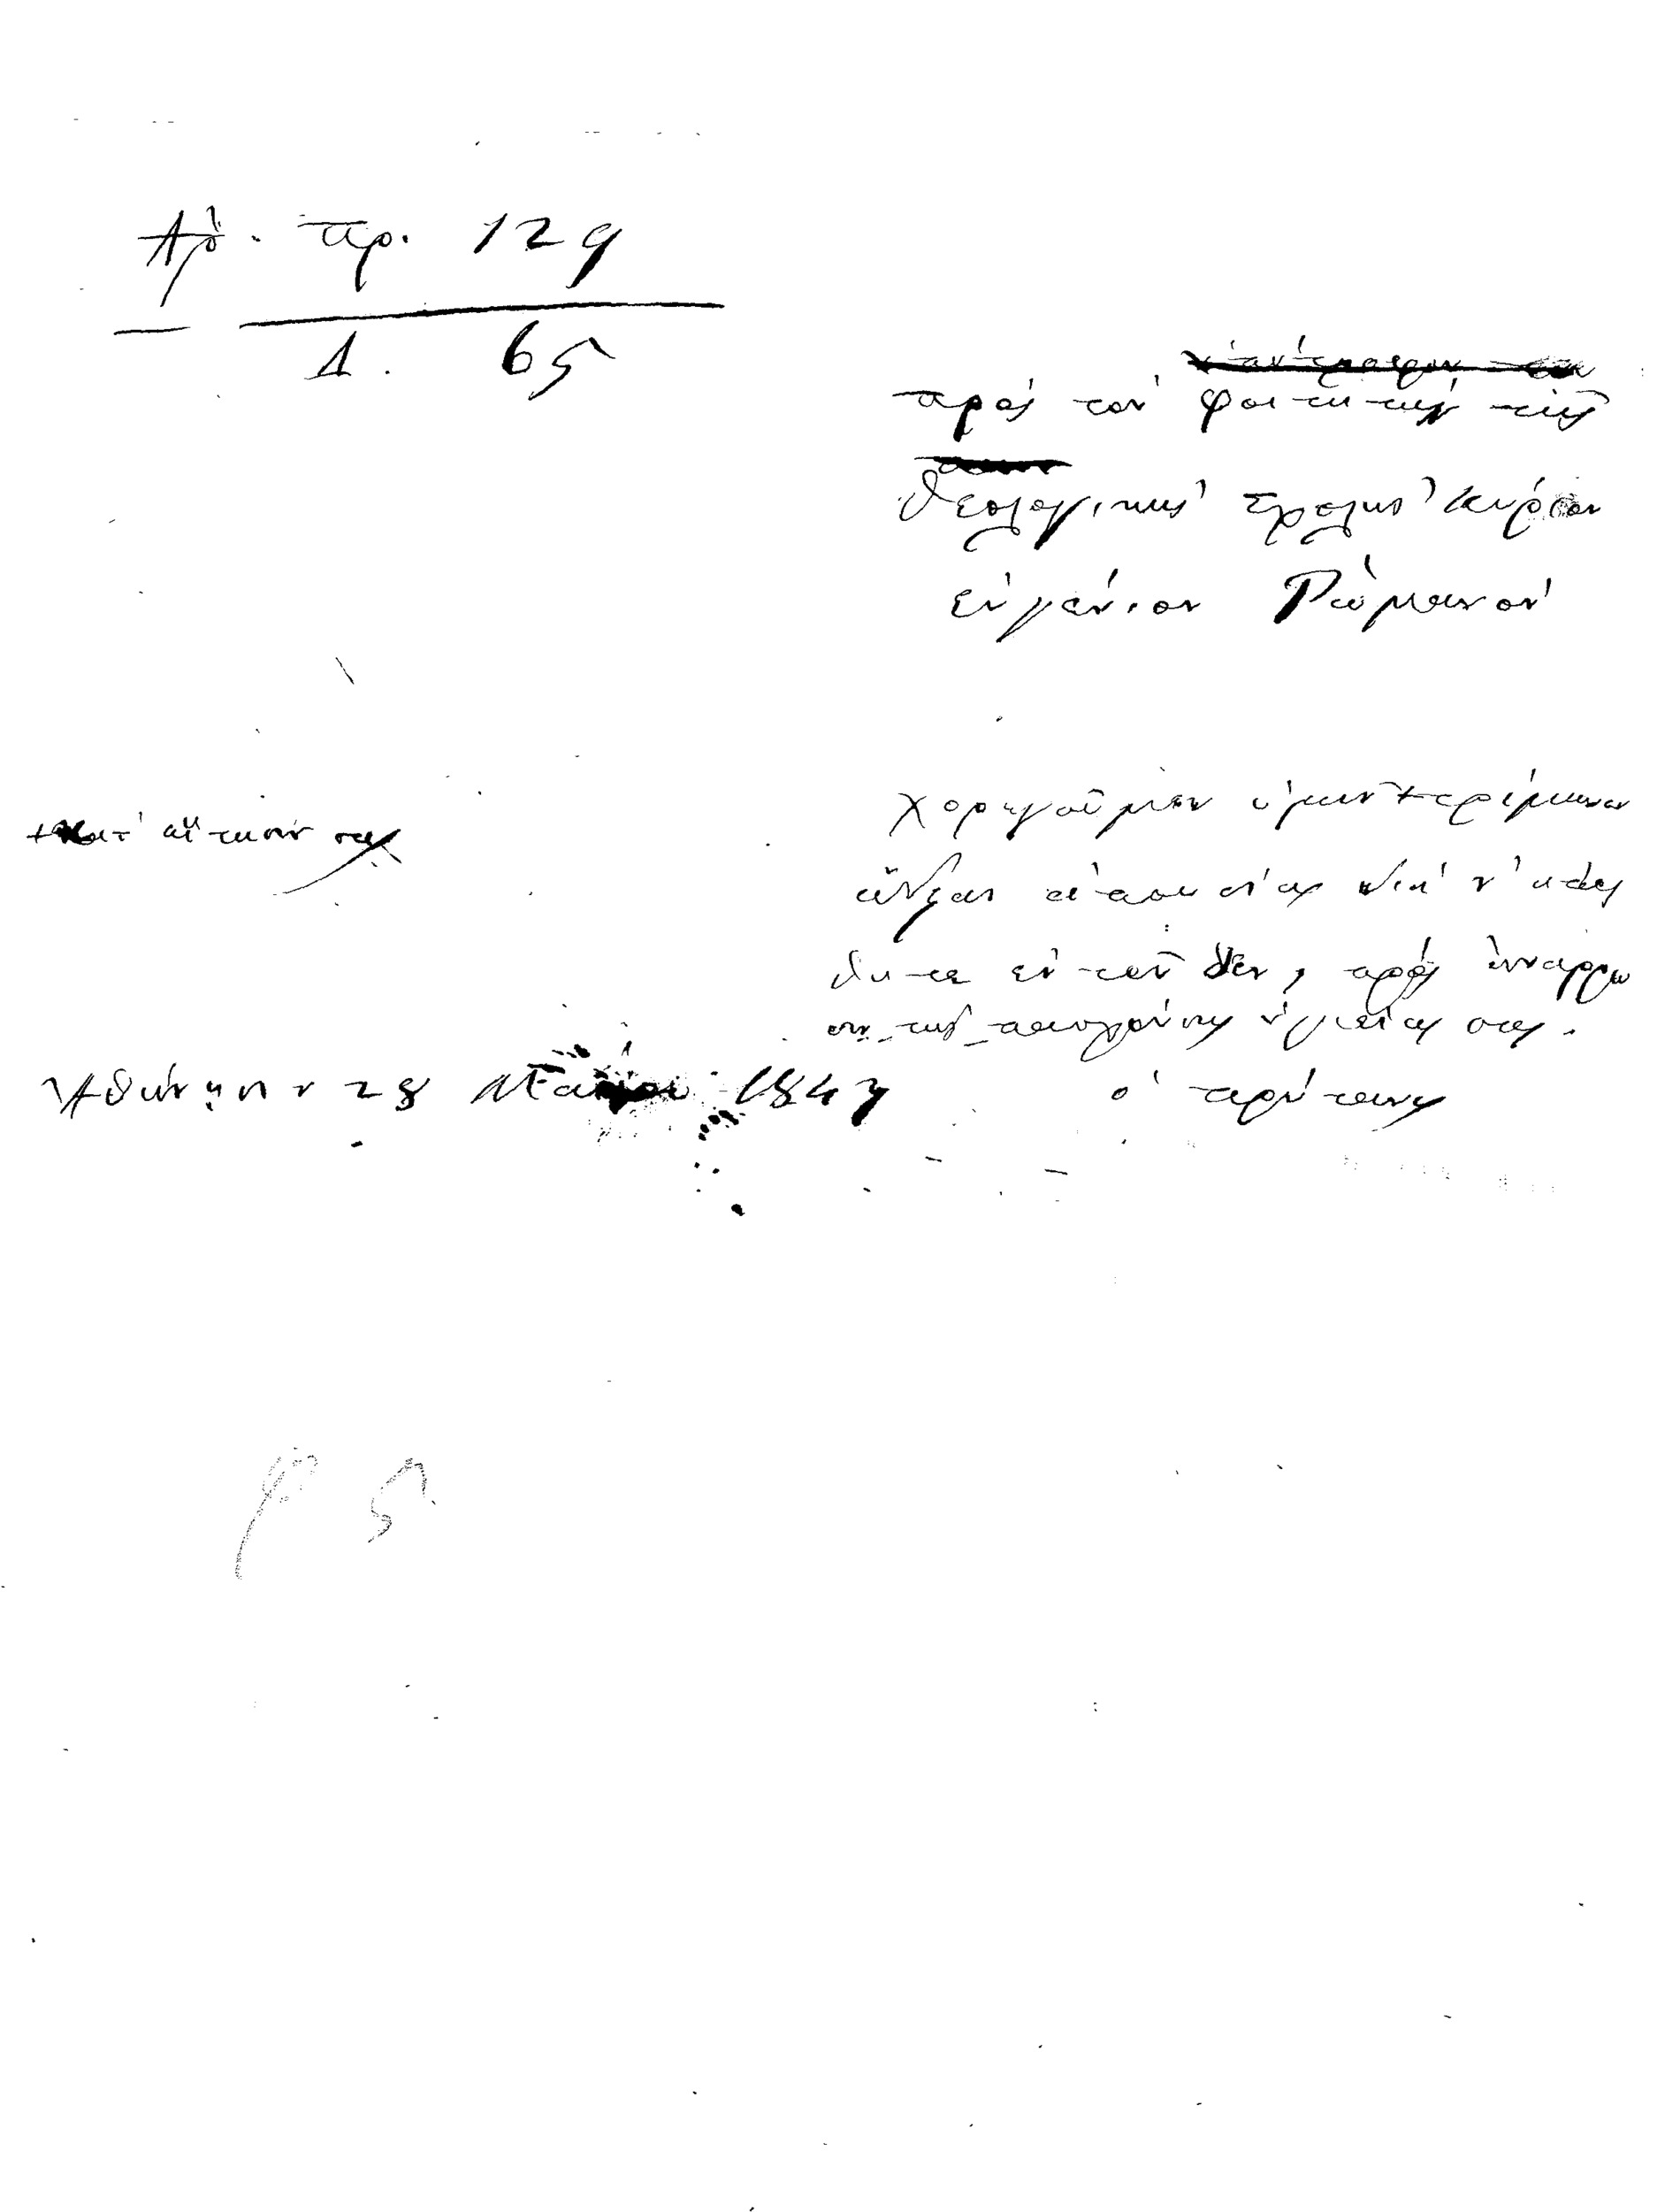 Ἀρ. πρ. 129
Δ. 65
πρὸς τὸν φοιτητὴν τῆς
θεολογικῆς Σχολῆς κύριον
εὐγένιον Ῥωμανόν
χορηγοῦμεν ὑμῖν + τρίμηνον
ἄδειαν ἀπουσίας διὰ ν' ἀπέλ
θητε ἐντεῦθεν, πρὸς ἀνάρρω
σιν τῆς πασχούσης ὑγιείας σας.
+ κατ' αἴτησίν σας
Ἀθήνησιν 28 Μαΐου 1847
ὁ πρύτανις